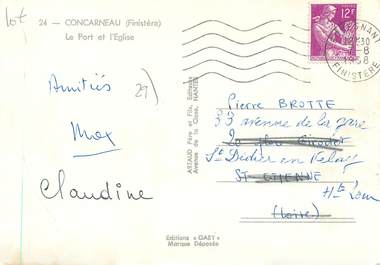 lot
24 — CONCARNEAU (Finistère)
Le Port et l'Eglise
12F
FINISTERE
Amitiés
29)
Max
Claudine
ARTAUD Père et Fils, Editeurs
Avenue de la Close, NANTES
Pierre BROTTE
33 avenue de la gare
20
St Didier en Velay
ST-ETIENNE
Hte Loire
(Loire)
Editions « GABY »
Marque Déposée